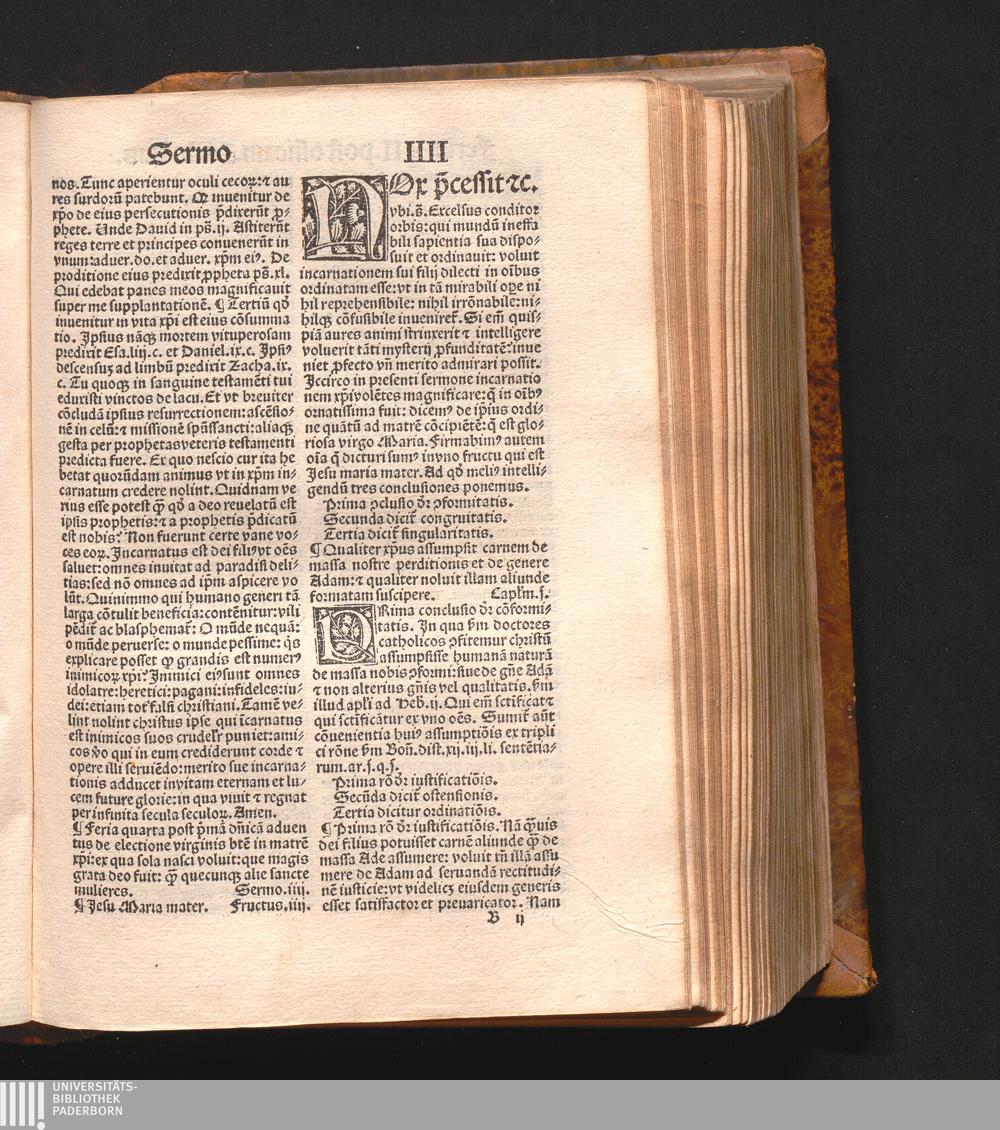 Sermo IIII
nos. Tunc aperientur oculi cecoꝝ: ⁊ au
res surdorū patebunt. Qꝛ inuenitur de
xp̄o de eius persecutionis p̄dixerūt ꝓ-
phete. Unde Dauid in ps̄. ij. Astiterūt
reges terre et principes conuenerūt in
vnum: aduer. do. et aduer. xp̄m eiꝰ. De
proditione eius predixit ꝓpheta ps̄. xl.
Qui edebat panes meos magnificauit
super me supplantationē. ¶ Tertiū qđ
inuenitur in vita xp̄i est eius cōsumma
tio. Ipsius nāqꝫ mortem vituperosam
predixit Esa. liij. c. et Daniel. ix. c. Ipsiꝰ
descensuꝫ ad limbū predixit Zacha. ix.
c. Tu quoqꝫ in sanguine testamēti tui
eduxisti vinctos de lacu. Et vt breuiter
cōcludā ipsius resurrectionem: ascēsio-
nē in celū: ⁊ missionē spūssancti: aliaqꝫ
gesta per prophetas veteris testamenti
predicta fuere. Ex quo nescio cur ita he
betat quorūdam animus vt in xp̄m in-
carnatum credere nolint. Quidnam ve
rius esse potest ꝙ̄ qđ a deo reuelatū est
ipsis prophetis: ⁊ a prophetis p̄dicatū
est nobis? Non fuerunt certe vane vo-
ces eoꝝ. Incarnatus est dei filiꝰ vt oēs
saluet: omnes inuitat ad paradisi deli-
tias: sed nō omnes ad ip̄m aspicere vo
lūt. Quinimmo qui humano generi tā
larga cōtulit beneficia: contēnitur: vili
pēdit̄ ac blasphemat̄: O mūde nequā:
o mūde peruerse: o munde pessime: q̇s
explicare posset ꝙ grandis est numerꝰ
inimicoꝝ xp̄i? Inimici eiꝰ sunt omnes
idolatre: heretici: pagani: infideles: iu-
dei: etiam tot falsi christiani. Tamē ve-
lint nolint christus ipse qui īcarnatus
est inimicos suos crudelr̄ puniet: ami-
cos v̊o qui in eum crediderunt corde ⁊
opere illi seruiēdo: merito sue incarna-
tionis adducet in vitam eternam et lu-
cem future glorie: in qua viuit ⁊ regnat
per infinita secula seculoꝝ. Amen.
¶ Feria quarta post p̄mā dn̄icā aduen
tus de electione virginis bt̄e in matrē
xp̄i: ex qua sola nasci voluit: que magis
grata deo fuit: ꝙ̄ quecunqꝫ alie sancte
mulieres. Sermo. iiij.
¶ Jesu Maria mater. Fructus. iiij.
NOx p̄cessit ⁊c.
vbi. s̄. Excelsus conditor
orbis: qui mundū ineffa
bili sapientia sua dispo-
suit et ordinauit: voluit
incarnationem sui filij dilecti in oībus
ordinatam esse: vt in tā mirabili oꝑe ni
hil reprehensibile: nihil irrōnabile: ni-
hilqꝫ cōfusibile inueniret̄. Si em̄ quis-
piā aures animi strinxerit ⁊ intelligere
voluerit tāti mysterij ꝓfunditatē: inue
niet ꝓfecto vn̄ merito admirari possit.
Iccirco in presenti sermone incarnatio
nem xp̄i volētes magnificare: q̄ in oībꝰ
ornatissima fuit: dicemꝰ de ip̄ius ordi-
ne quātū ad matrē cōcipiētē: q̄ est glo-
riosa virgo Maria. Firmabimꝰ autem
oīa q̄ dicturi sumꝰ in vno fructu qui est
Jesu maria mater. Ad qđ meliꝰ intelli-
gendū tres conclusiones ponemus.
Prima ꝯclusio dr̄ ꝯformitatis.
Secunda dicit̄ congruitatis.
Tertia dicit̄ singularitatis.
¶ Qualiter xp̄us assumpsit carnem de
massa nostre perditionis et de genere
Adam: ⁊ qualiter noluit illam aliunde
formatam suscipere. Caplm̄. j.
PRima conclusio dr̄: cōformi-
tatis. In qua ẜm doctores
catholicos ꝯfitemur christū
assumpsisse humanā naturā
de massa nobis ꝯformi: siue de gn̄e Adā
⁊ non alterius gn̄is vel qualitatis. ẜm
illud apl̄i ad Heb. ij. Qui em̄ sctificat ⁊
qui sctificātur ex vno oēs. Sumit̄ aūt
cōuenientia huiꝰ assumptiōis ex tripli
ci rōne ẜm Bon̄. dist. xij. iij. li. sentētia-
rum. ar. j. q. j.
Prima rō dr̄ iustificatiōis.
Secūda dicit̄ ostensionis.
Tertia dicitur ordinatiōis.
¶ Prima rō dr̄ iustificatiōis. Nā q̄uis
dei filius potuisset carnē aliunde ꝙ̄ de
massa Ade assumere: voluit tn̄ illā assu
mere de Adam ad seruandā rectitudi-
nē iusticie: vt videlicꝫ eiusdem generis
esset satisfactor et preuaricator. Nam
B ij
UNIVERSITÄTS-
BIBLIOTHEK
PADERBORN